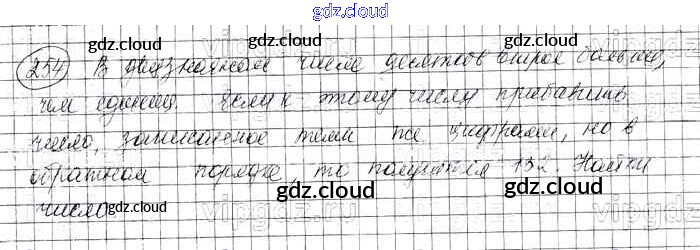 gdz.cloud
gdz.cloud gdz.cloud
254) В двузначном числе десятков втрое больше,
чем единиц. Если к этому числу прибавить
число, записанное теми же цифрами, но в
обратном порядке, то получится 132. Найти
число
gdz.cloud gdz.cloud
gdz.cloud gdz.cloud